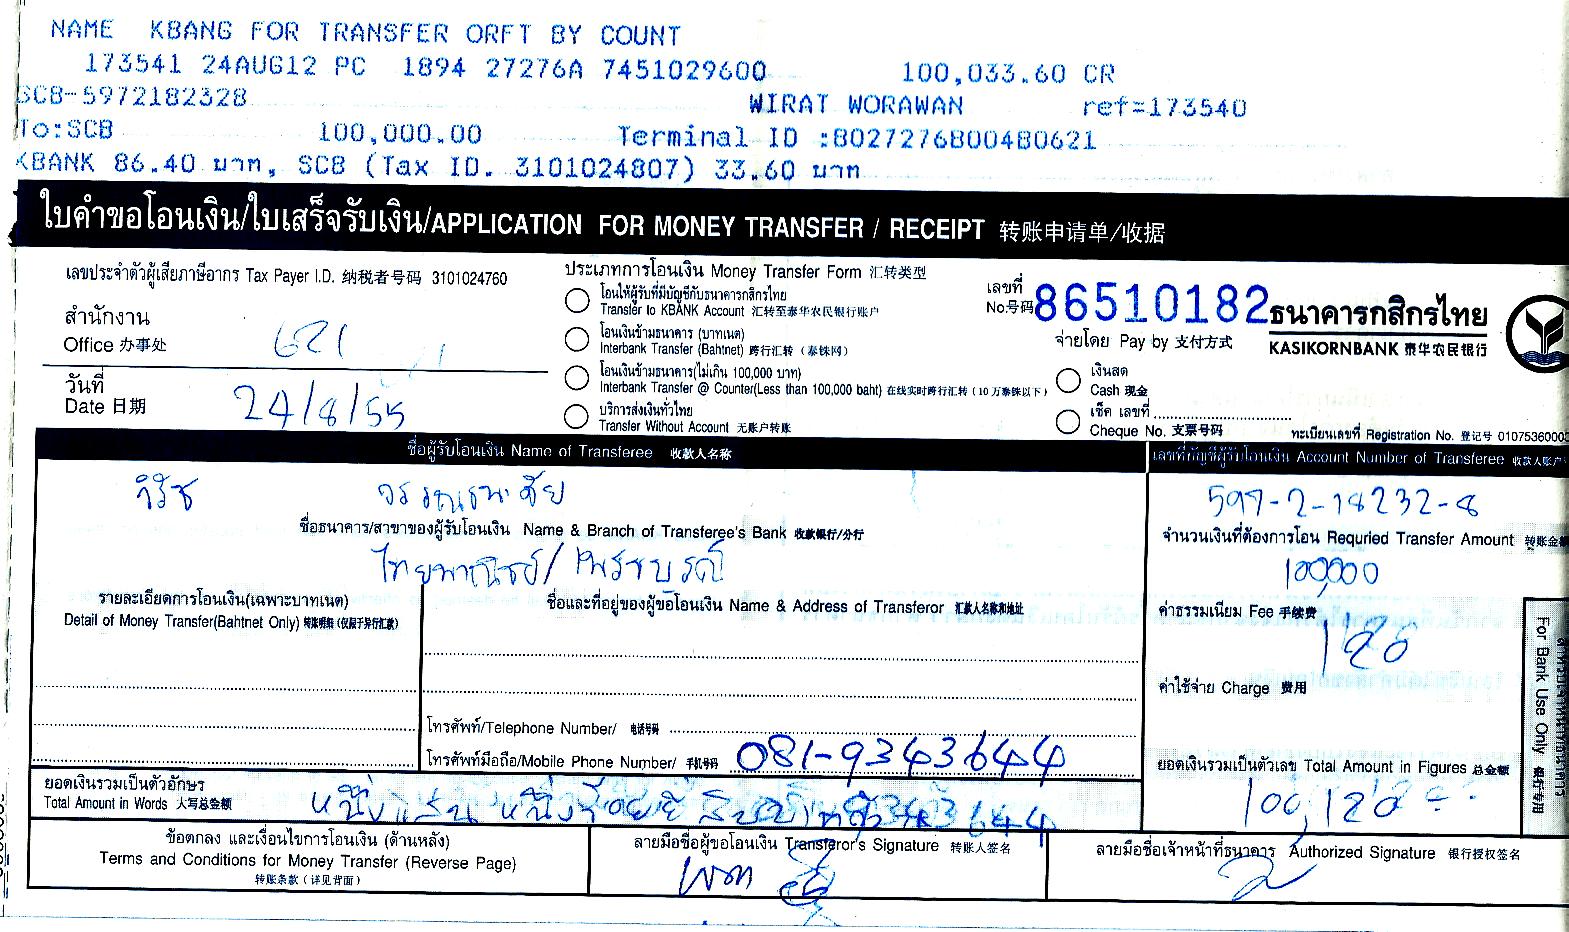 NAME KBANG FOR TRANSFER ORFT BY COUNT
173541 24AUG12 PC 1894 27276A 7451029600 100,033.60 CR
SCB-5972182328 WIRAT WORAWAN ref=173540
To:SCB 100,000.00 Terminal ID :8027276800480621
KBANK 86.40 บาท, SCB (Tax ID. 3101024807) 33.60 บาท
ใบคำขอโอนเงิน/ใบเสร็จรับเงิน/APPLICATION FOR MONEY TRANSFER / RECEIPT 转账申请单/收据
เลขประจำตัวผู้เสียภาษีอากร Tax Payer I.D. 纳税者号码 3101024760
สำนักงาน
Office 办事处 621
วันที่
Date 日期 24/8/55
ประเภทการโอนเงิน Money Transfer Form 汇转类型
โอนให้ผู้รับที่มีบัญชีกับธนาคารกสิกรไทย
Transfer to KBANK Account 汇转至泰华农民银行账户
โอนเงินข้ามธนาคาร (บาทเนต)
Interbank Transfer (Bahtnet) 跨行汇转 (泰铢网)
โอนเงินข้ามธนาคาร(ไม่เกิน 100,000 บาท)
Interbank Transfer @ Counter(Less than 100,000 baht) 在线实时跨行汇转 (10 万泰铢以下)
บริการส่งเงินทั่วไทย
Transfer Without Account 无账户转账
เลขที่
No.号码 86510182
จ่ายโดย Pay by 支付方式
เงินสด
Cash 现金
เช็ค เลขที่
Cheque No. 支票号码
ธนาคารกสิกรไทย
KASIKORNBANK 泰华农民银行
ทะเบียนเลขที่ Registration No. 登记号 01075360003
ชื่อผู้รับโอนเงิน Name of Transferee 收款人名称
เลขที่บัญชีผู้รับโอนเงิน Account Number of Transferee 收款人账户
597-2-18232-8
ชื่อธนาคาร/สาขาของผู้รับโอนเงิน Name & Branch of Transferee's Bank 收款银行/分行
ไทยพาณิชย์/เพชรบุรี
จำนวนเงินที่ต้องการโอน Requried Transfer Amount 转账金额
100,000
รายละเอียดการโอนเงิน(เฉพาะบาทเนต)
Detail of Money Transfer(Bahtnet Only) 转账明细 (仅限于异行汇款)
ชื่อและที่อยู่ของผู้ขอโอนเงิน Name & Address of Transferor 汇款人名称和地址
ค่าธรรมเนียม Fee 手续费
120
ค่าใช้จ่าย Charge 费用
For Bank Use Only 银行专用
โทรศัพท์/Telephone Number/ 电话号码
โทรศัพท์มือถือ/Mobile Phone Number/ 手机号码 081-9343644
ยอดเงินรวมเป็นตัวเลข Total Amount in Figures 总金额
100,120
ยอดเงินรวมเป็นตัวอักษร
Total Amount in Words 大写总金额 หนึ่งแสนหนึ่งร้อยยี่สิบบาท
ข้อตกลง และเงื่อนไขการโอนเงิน (ด้านหลัง)
Terms and Conditions for Money Transfer (Reverse Page)
转账条款 (详见背面)
ลายมือชื่อผู้ขอโอนเงิน Transferor's Signature 转账人签名
ลายมือชื่อเจ้าหน้าที่ธนาคาร Authorized Signature 银行授权签名